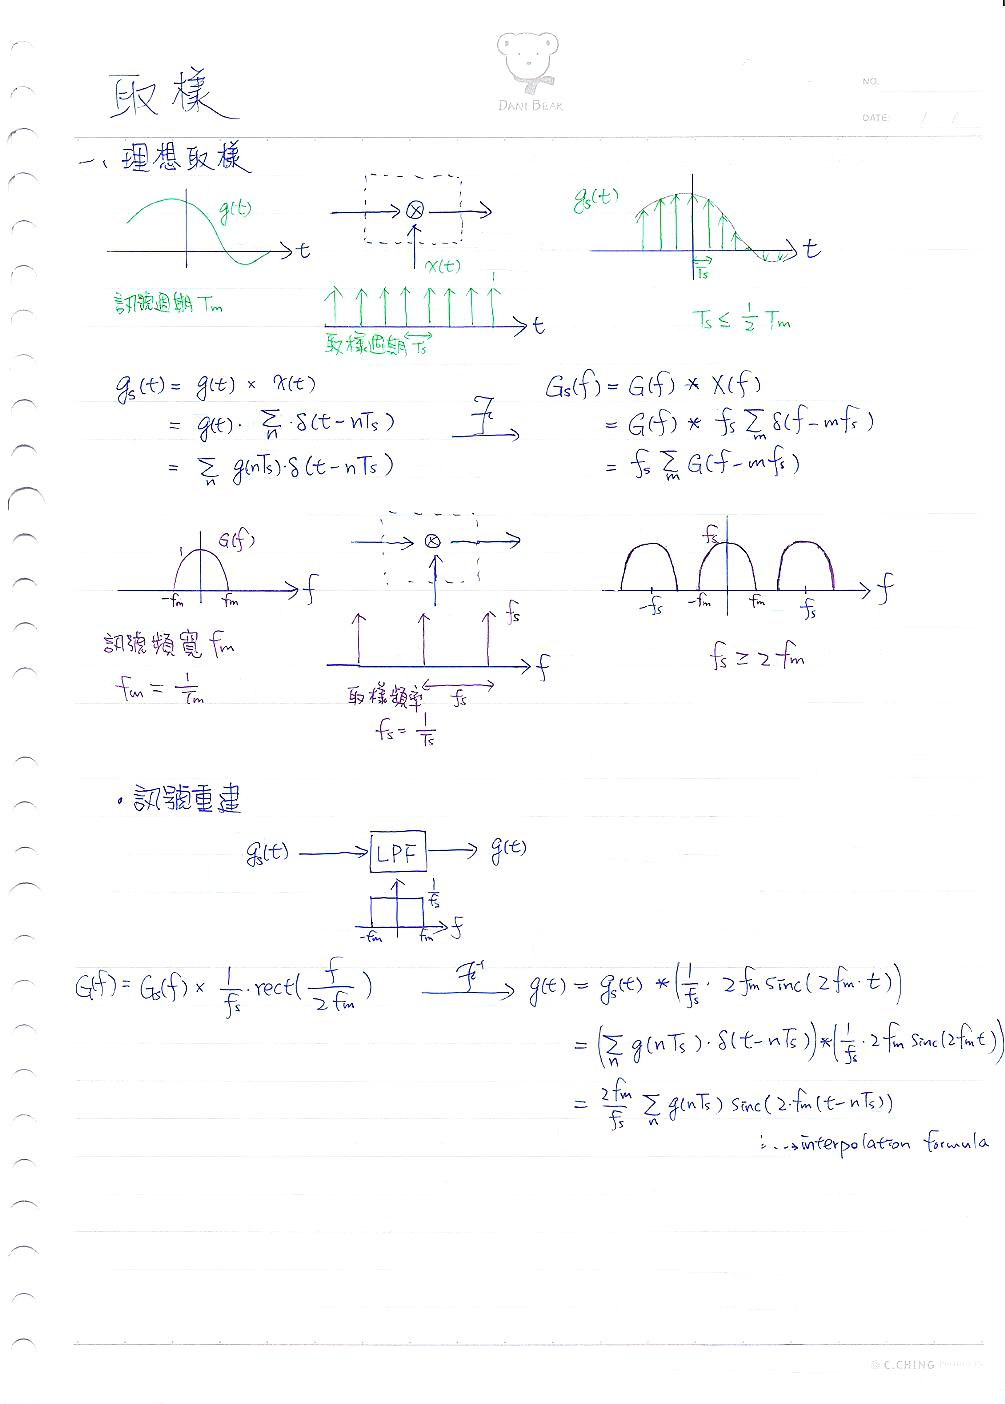 DANI BEAR
NO.
DATE: / /
取樣
一、理想取樣
g(t)
t
x(t)
gs(t)
t
Ts
訊號週期 Tm
1
t
取樣週期 Ts
Ts ≤ 1/2 Tm
gs(t) = g(t) × x(t)
= g(t)· Σn ·δ(t-nTs)
= Σn g(nTs)·δ(t-nTs)
F
Gs(f) = G(f) * X(f)
= G(f) * fs Σm δ(f-mfs)
= fs Σm G(f-mfs)
1
G(f)
-fm
fm
f
訊號頻寬 fm
fm = 1/Tm
fs
f
取樣頻率 fs
fs = 1/Ts
fs
-fs
-fm
fm
fs
f
fs ≥ 2fm
• 訊號重建
gs(t) LPF g(t)
1/fs
-fm
fm
f
G(f) = Gs(f) × 1/fs · rect(f/2fm)
F⁻¹
g(t) = gs(t) * (1/fs · 2fm sinc(2fm·t))
= (Σn g(nTs)·δ(t-nTs)) * (1/fs · 2fm sinc(2fmt))
= 2fm/fs Σn g(nTs) sinc(2·fm(t-nTs))
interpolation formula
C.CHING PRODUCTS